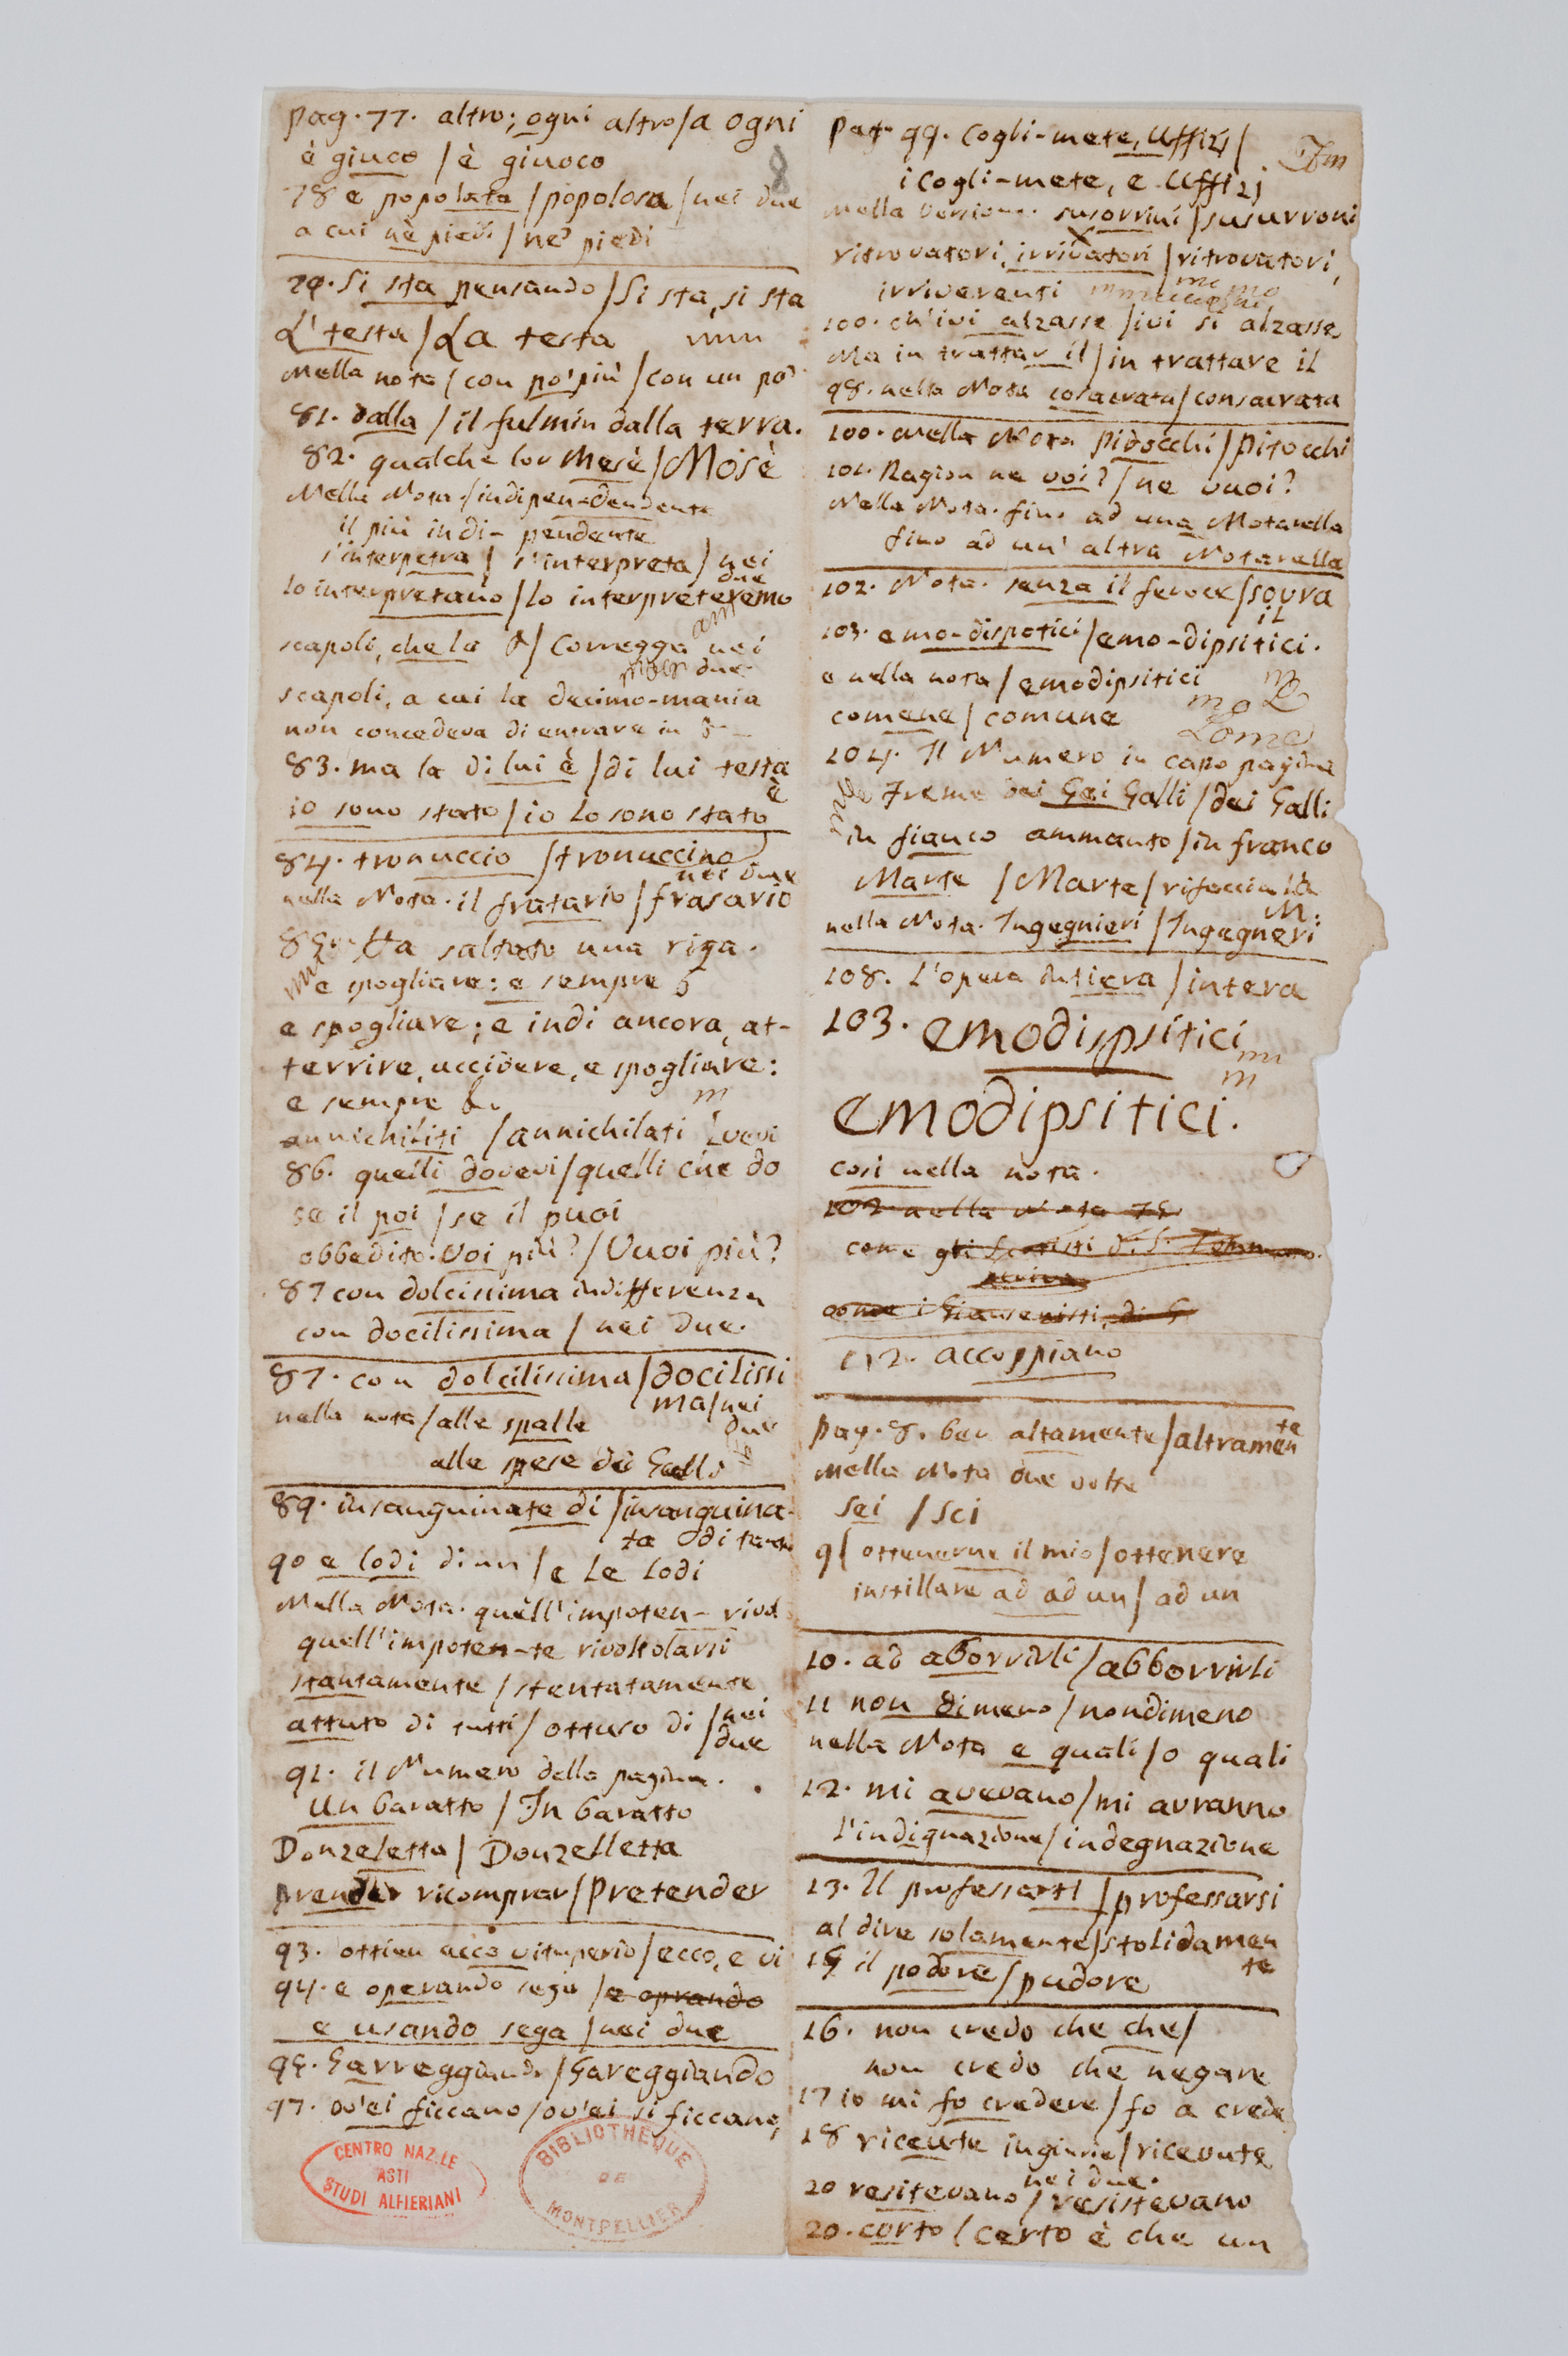 pag. 77. altro; ogni altro/a ogni
è giuco / è giuoco
8
78 e popolata / popolosa / nei due
a cui nè piedi / ne' piedi
79. Si sta pensando / Si sta, si sta
L' testa / La testa
Nella nota / con po' più / con un po'
81. dalla / il fulmin dalla terra.
82. qualche lor Mesè / Mosè
Nella Nota / indipen-dendente
il più indi-pendente
s'interpetra / s'interpreta / nei due
lo interpretano / lo interpreteremo
scapoli, che la / Correggo nei due
scapoli, a cui la decimo-mania
non concedeva di entrare in
83. ma la di lui è / di lui testa è
io sono stato / io lo sono stato
84. tronuccio / tronuccino
nei due
nella Nota. il fratario / frasario
85. Ha saltato una riga.
e spogliare: e sempre
e spogliare; e indi ancora, at-
terrire, uccidere, e spogliare:
e sempre
annichiliti / annichilati
86. quelli dovevi / quelli che do
vevi
se il poi / se il puoi
obbedito. Voi più? / Vuoi più?
87 con dolcissima indifferenza
con docilissima / nei due.
87. con dolcilissima / docilissi
ma / nei due
nella nota / alle spalle
alle spese dei Galli
89. insanguinate di / insanguina-
ta di
90 e lodi di un / e le lodi
Nella Nota. quell'impoten- rivol
quell'impoten-te rivoltolarsi
stantamente / stentatamente
attuto di tutti / ottuso di / nei due
91. il Numero della pagina.
Un baratto / In baratto
Donzeletta / Donzelletta
prender ricomprar / Pretender
93. ottien acco vituperio / ecco, e vi
94. e operando sega / e oprando
e usando sega / nei due
95. Garreggiando / Gareggiando
97. ov'ei ficcano / ov'ei si ficcano,
CENTRO NAZ.LE
ASTI
STUDI ALFIERIANI
BIBLIOTHEQUE
DE
MONTPELLIER
Pag. 99. Cogli-mete, Uffizj /
i Cogli-mete, e Uffizj
Nella Versione. susorrini / susurroni
ritrovatori, irrivatori / ritrovatori,
irriverenti
100. ch'ivi alzasse / ivi si alzasse
Ma in trattar il / in trattare il
98. nella Nota cosacrata / consacrata
100. Nella Nota Pidocchi / Pitocchi
101. Ragion ne voi? / ne vuoi?
Nella Nota. fino ad una Notarella
fino ad un' altra Notarella
102. Nota. senza il feroce / sovra
il
103. emo-dispotici / emo-dipsitici.
e nella nota / emodipsitici
comene / comune
104. Il Numero in capo pagina
Freme dei Gai Galli / dei Galli
in fianco ammanto / in franco
Marte / Marte / rifaccia la
M:
nella Nota. Ingegnieri / Ingegneri
108. L'opera intiera / intera
103. emodispsitici
emodipsitici.
così nella nota.
102 nella nota 75
come gli
come i Giansenisti, di S
112. accoppiano
pag. 8. ben altamente / altramen
te
Nella Nota due volte
sei / sci
9 / ottenerne il mio / ottenere
instillare ad ad un / ad un
10. ad aborrirli / abborrirli
11 non dimeno / nondimeno
nella Nota e quali / o quali
12. mi avevano / mi avranno
L'indignazione / indegnazione
13. Il professarti / professarsi
al dire solamente / stolidamen
te
15 il podore / pudore
16. non credo che che /
non credo che negare
17 io mi fo credere / fo a crede
18 riceute ingiurie / ricevute
nei due.
20 resitevano / resistevano
20. corto / certo è che un